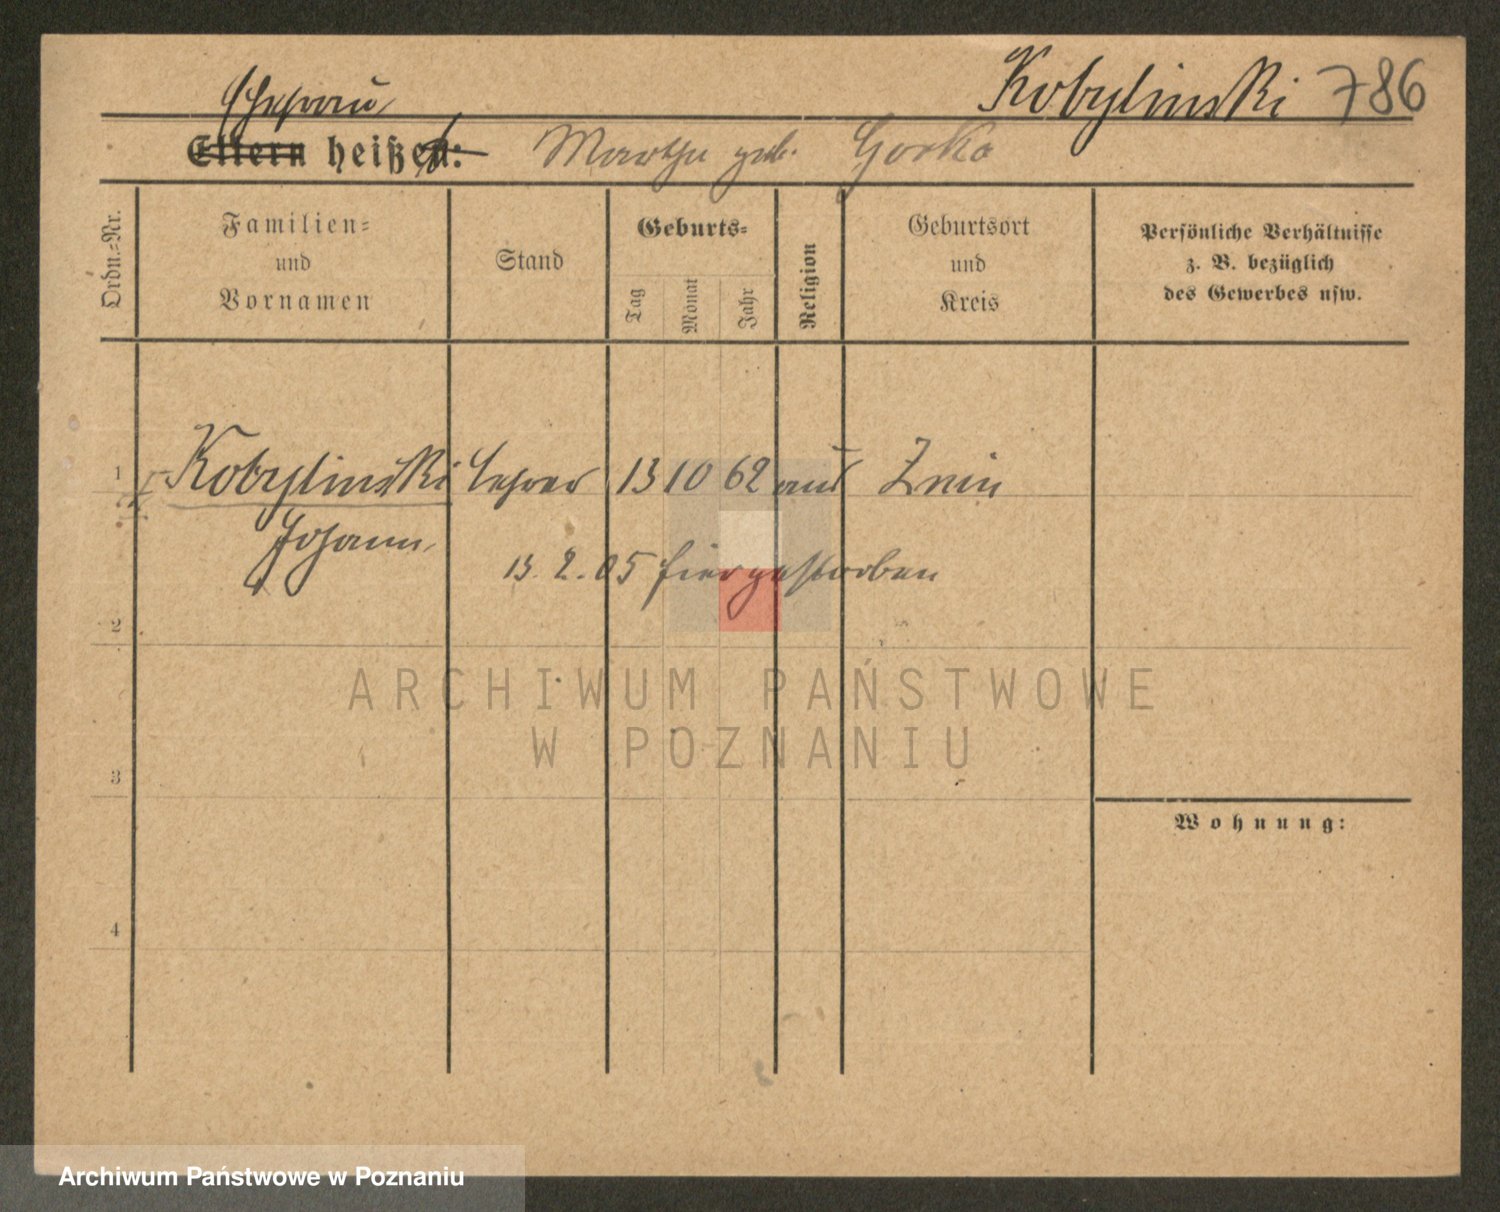 Kobylinski 786
Ehefrau
Eltern heißen: Martha geb. Gorka
Ordn.=Nr.
Familien=
und
Vornamen
Stand
Geburts=
Tag
Monat
Jahr
Religion
Geburtsort
und
Kreis
Persönliche Verhältnisse
z. B. bezüglich
des Gewerbes usw.
1 Kobylinski Lehrer 13 10 62 Znin
Johann
13. 2. 05 hier gestorben
2
3
4
Wohnung:
ARCHIWUM PAŃSTWOWE
W POZNANIU
Archiwum Państwowe w Poznaniu